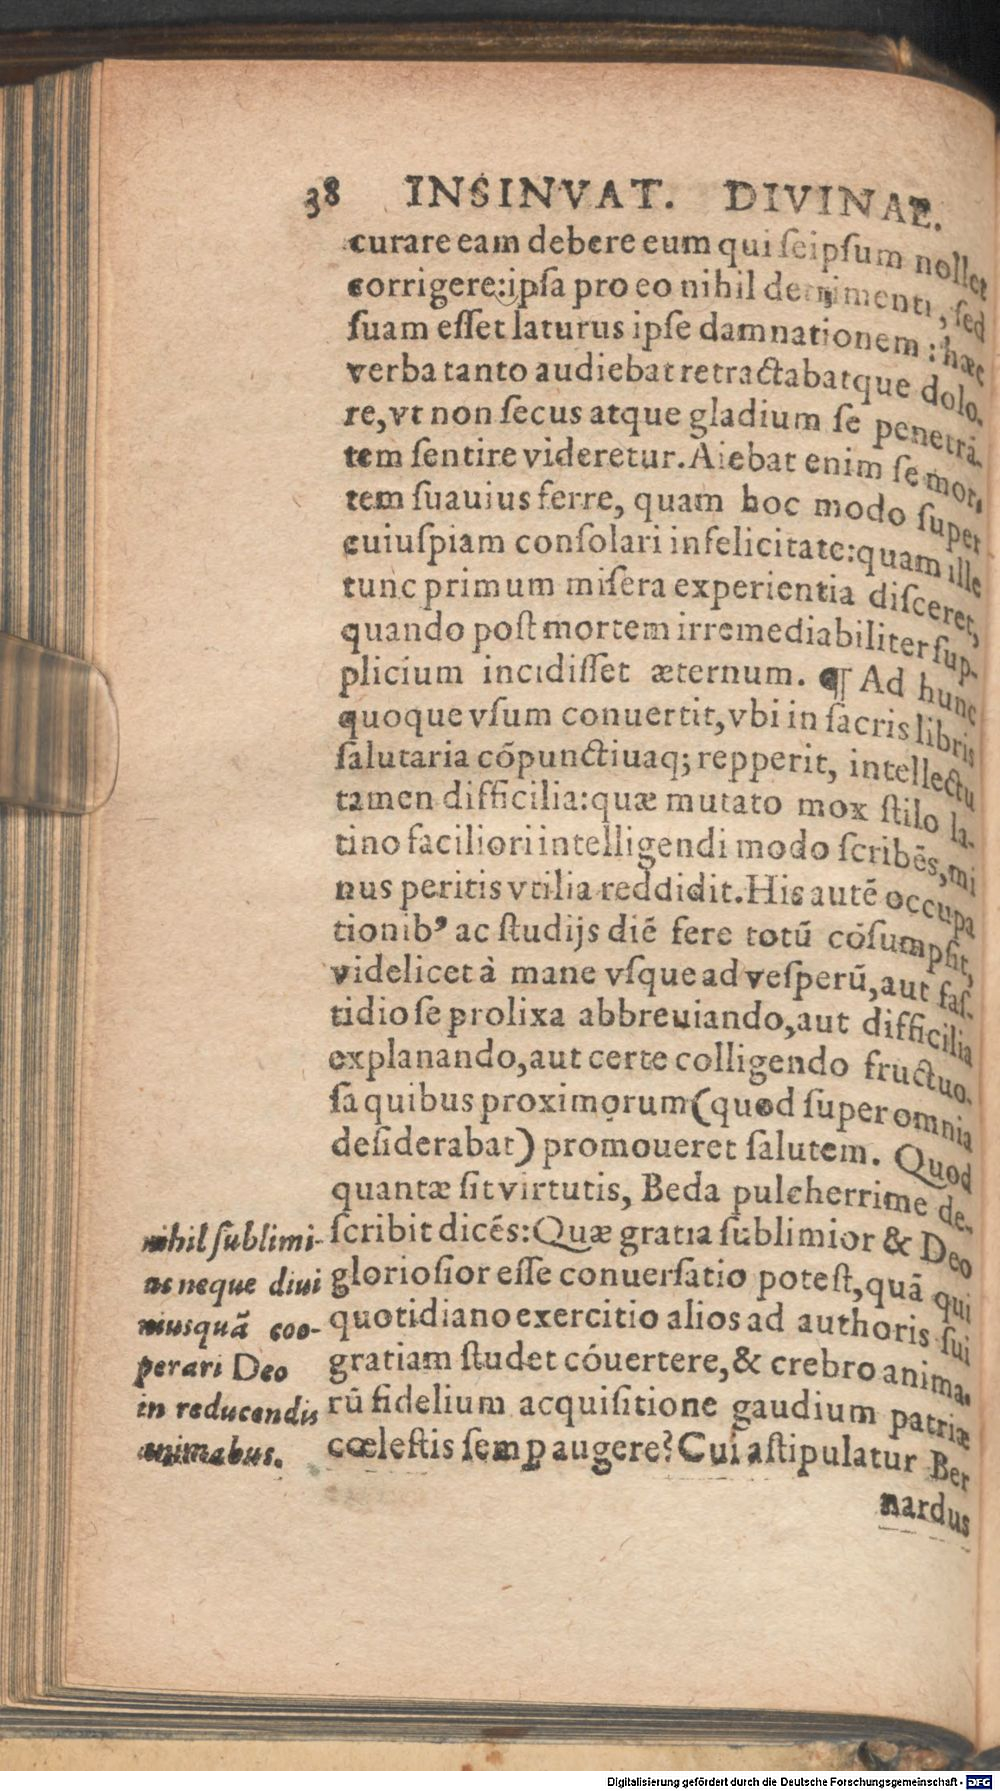 38 INSINVAT. DIVINAE.
curare eam debere eum qui seipsum nollet
corrigere: ipsa pro eo nihil detrimenti, sed
suam esset laturus ipse damnationem: hæc
verba tanto audiebat retractabatque dolo-
re, vt non secus atque gladium se penetrā-
tem sentire videretur. Aiebat enim se mor-
tem suauius ferre, quam hoc modo super
cuiuspiam consolari infelicitate: quam ille
tunc primum misera experientia disceret,
quando post mortem irremediabiliter sup-
plicium incidisset æternum. ¶ Ad hunc
quoque vsum conuertit, vbi in sacris libris
salutaria cōpunctiuaq; repperit, intellectu
tamen difficilia: quæ mutato mox stilo la-
tino faciliori intelligendi modo scribēs, mi
nus peritis vtilia reddidit. His autē occupa
tionibꝰ ac studijs diē fere totū cōsumpsit,
videlicet à mane vsque ad vesperū, aut fas-
tidiose prolixa abbreuiando, aut difficilia
explanando, aut certe colligendo fructuo-
sa quibus proximorum (quod super omnia
desiderabat) promoueret salutem. Quod
quantæ sit virtutis, Beda pulcherrime de-
scribit dicēs: Quæ gratia sublimior & Deo
gloriosior esse conuersatio potest, quā qui
quotidiano exercitio alios ad authoris sui
gratiam studet cōuertere, & crebro anima-
rū fidelium acquisitione gaudium patriæ
cœlestis semꝑ augere? Cui astipulatur Ber
nardus
nihil sublimi-
us neque diui
niusquā coo-
perari Deo
in reducendis
animabus.
Digitalisierung gefördert durch die Deutsche Forschungsgemeinschaft - DFG